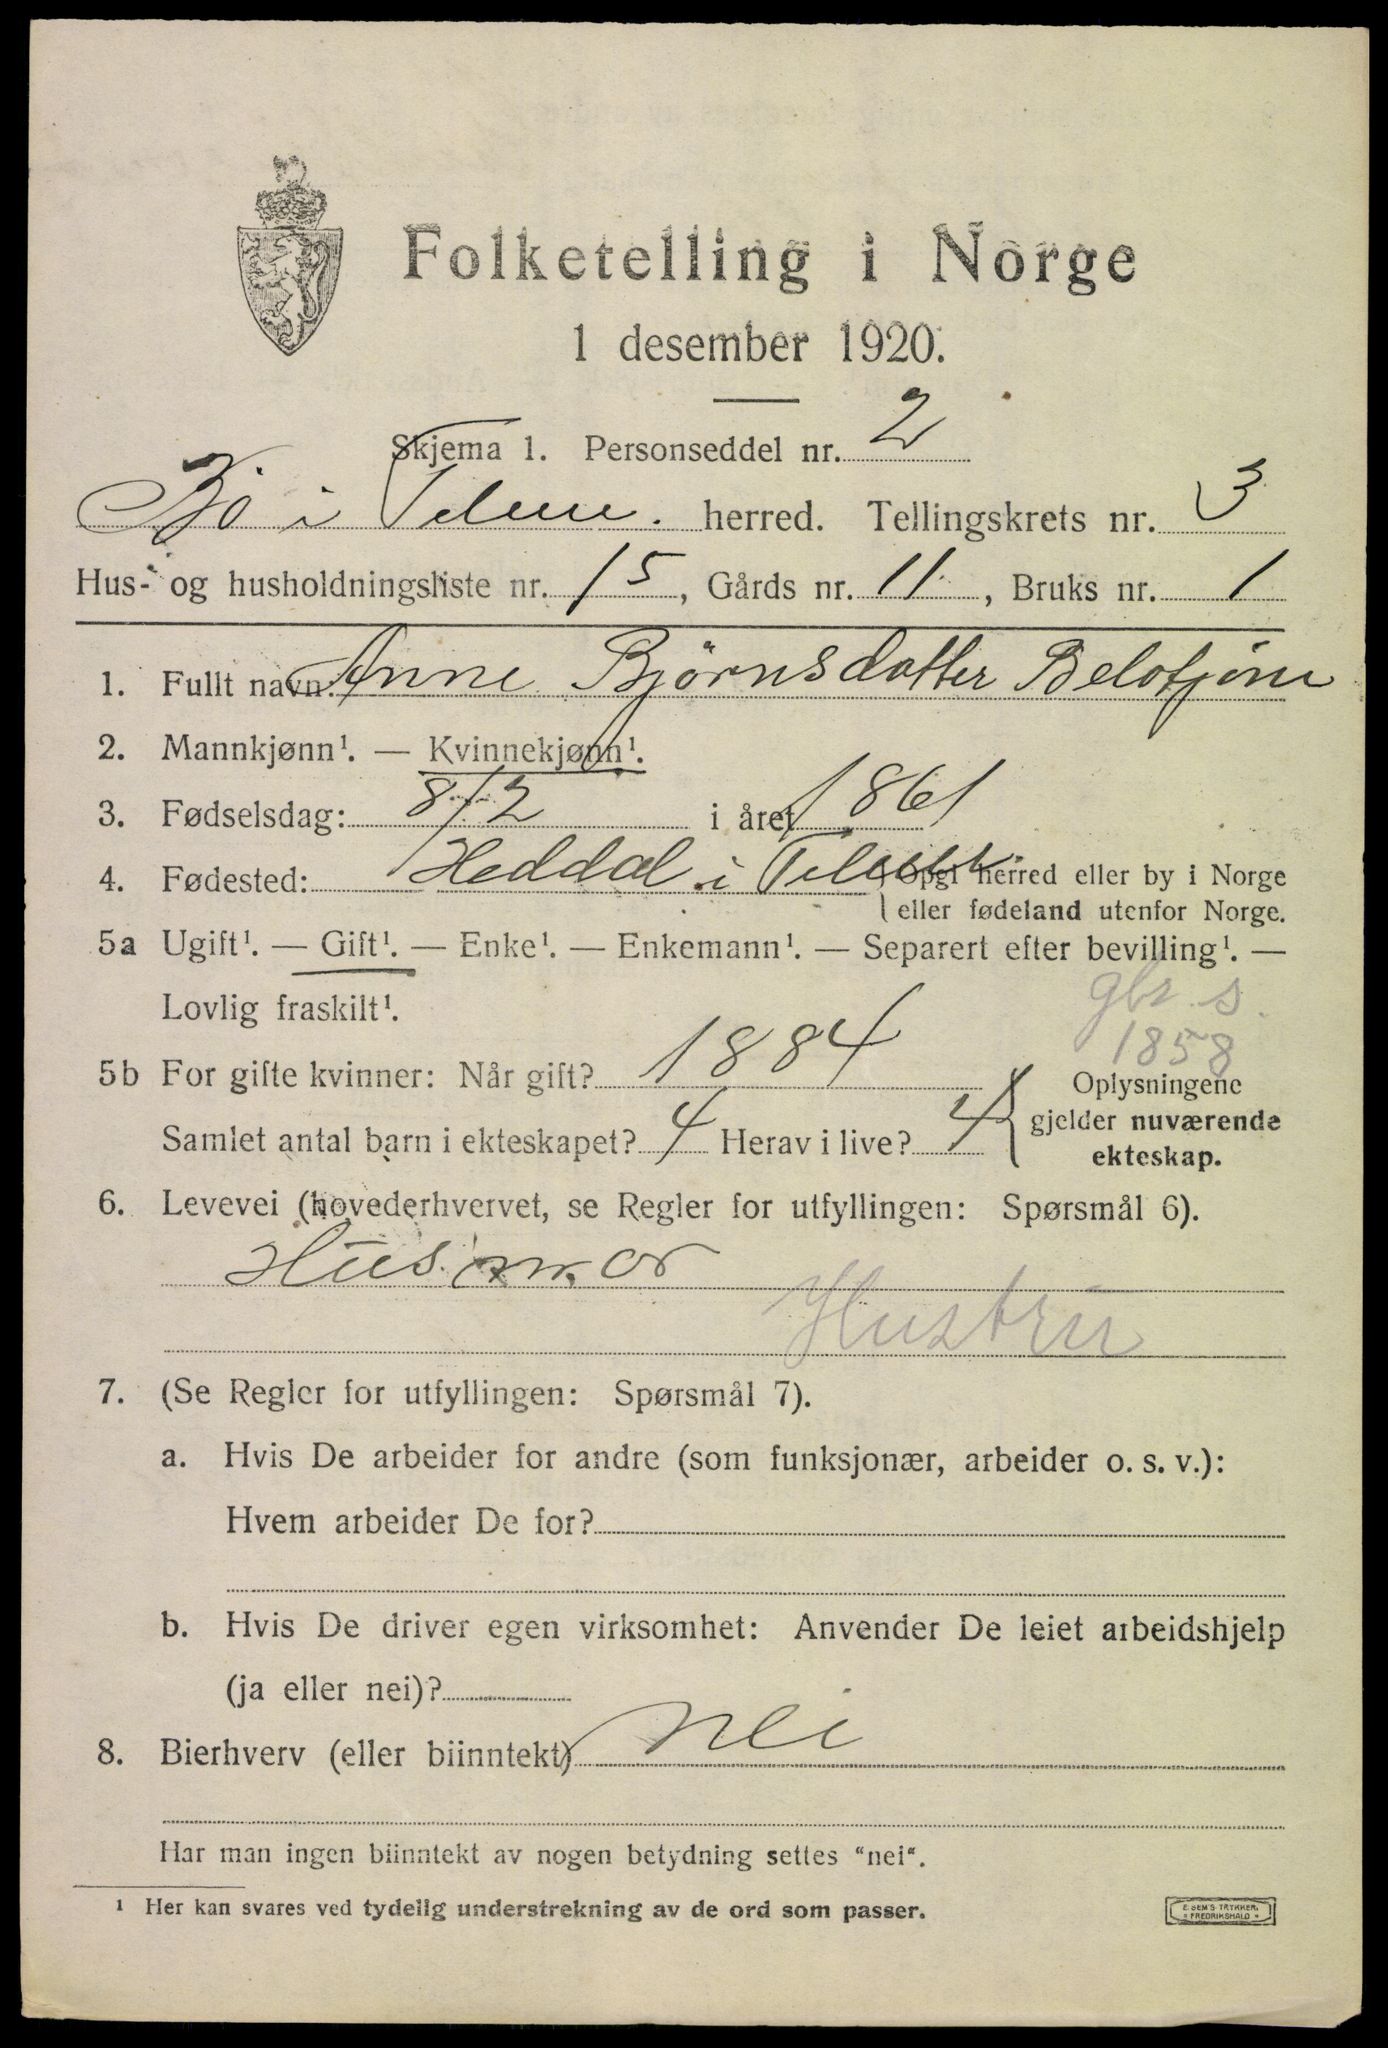 Folketelling i Norge
1 desember 1920.
Skjema 1. Personseddel nr. 2
Bø i Telem. herred. Tellingskrets nr. 3
Hus- og husholdningsliste nr. 15, Gårds nr. 11, Bruks nr. 1
1. Fullt navn: Anne Bjørnsdatter
2. Mannkjønn¹. — Kvinnekjønn¹.
3. Fødselsdag: 8/2 i året 1861
4. Fødested: Heddal i { Opgi herred eller by i Norge
eller fødeland utenfor Norge.
5a Ugift¹. — Gift¹. — Enke¹. — Enkemann¹. — Separert efter bevilling¹. —
Lovlig fraskilt¹. gbr. s.
1858
5b For gifte kvinner: Når gift? 1884 { Oplysningene
Samlet antal barn i ekteskapet? 4 Herav i live? 4 gjelder nuværende
ekteskap.
6. Levevei (hovederhvervet, se Regler for utfyllingen: Spørsmål 6).
Husmor
Hustru
7. (Se Regler for utfyllingen: Spørsmål 7).
a. Hvis De arbeider for andre (som funksjonær, arbeider o. s. v.):
Hvem arbeider De for?
b. Hvis De driver egen virksomhet: Anvender De leiet arbeidshjelp
(ja eller nei)?
8. Bierhverv (eller biinntekt) nei
Har man ingen biinntekt av nogen betydning settes "nei".
¹ Her kan svares ved tydelig understrekning av de ord som passer.
E. SEM'S TRYKKERI
* FREDRIKSHALD *